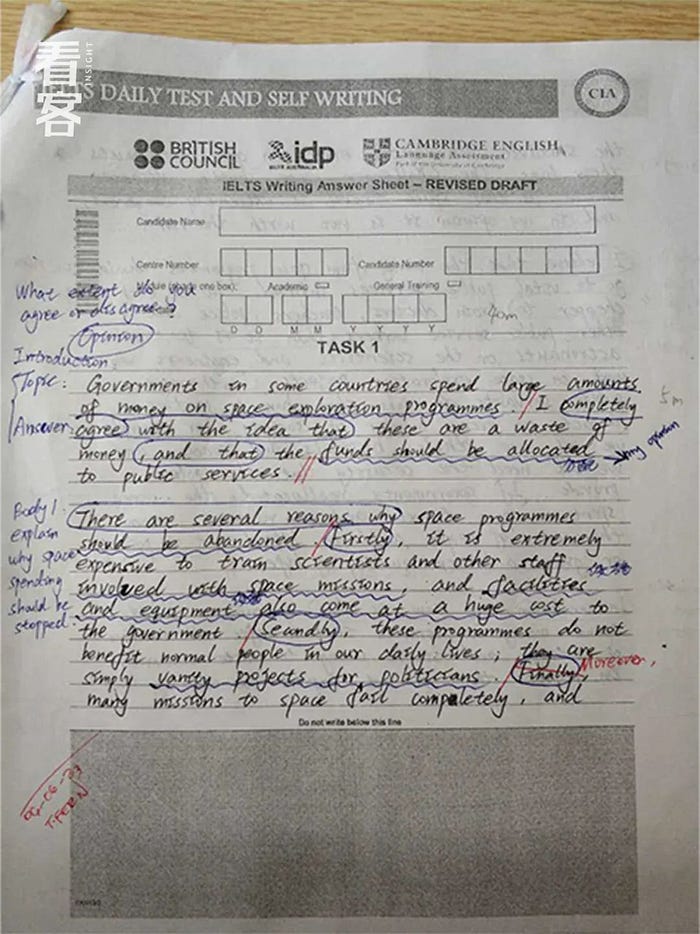 看客
INSIGHT
IELTS DAILY TEST AND SELF WRITING
CIA
BRITISH COUNCIL
idp
IELTS AUSTRALIA
CAMBRIDGE ENGLISH
Language Assessment
Part of the University of Cambridge
IELTS Writing Answer Sheet – REVISED DRAFT
Candidate Name
Centre Number
Candidate Number
Module (shade one box):
Academic
General Training
D D M M Y Y Y Y
What extent do you
agree or disagree?
Opinion
40m
TASK 1
Introduction
Topic: Governments in some countries spend large amounts
of money on space exploration programmes. I completely
5m
Answer: agree with the idea that these are a waste of
money, and that the funds should be allocated
my opinion
to public services.
Body 1.
explain
why space
spending
should be
stopped.
There are several reasons why space programmes
should be abandoned. Firstly, it is extremely
expensive to train scientists and other staff
involved with space missions, and facilities
and equipment also come at a huge cost to
the government. Secondly, these programmes do not
benefit normal people in our daily lives; they are
simply vanity projects for politicians. Finally,
Moreover,
many missions to space fail completely, and
Do not write below this line
T.FERN